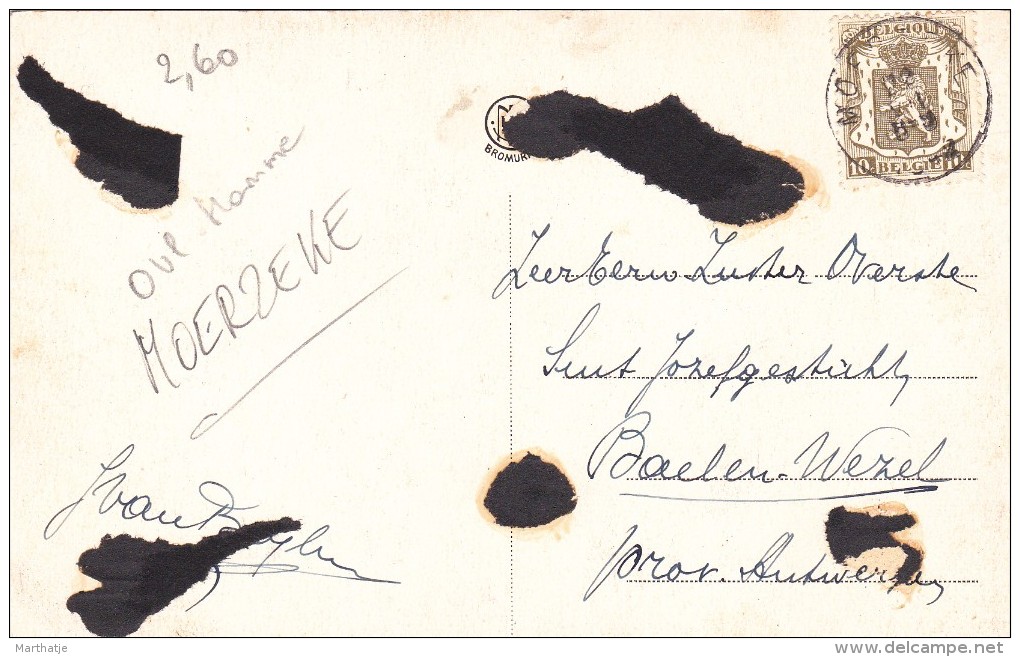 2,60
Ovl Hamme
MOERZEKE
BROMUR
BELGIQUE
MOE ZE
10c BELGIE 10c
Zeer Eerw Zuster Overste
Sint Jozefgesticht,
Baelen-Wezel
prov. Antwerpen,
Marthatje
www.delcampe.net